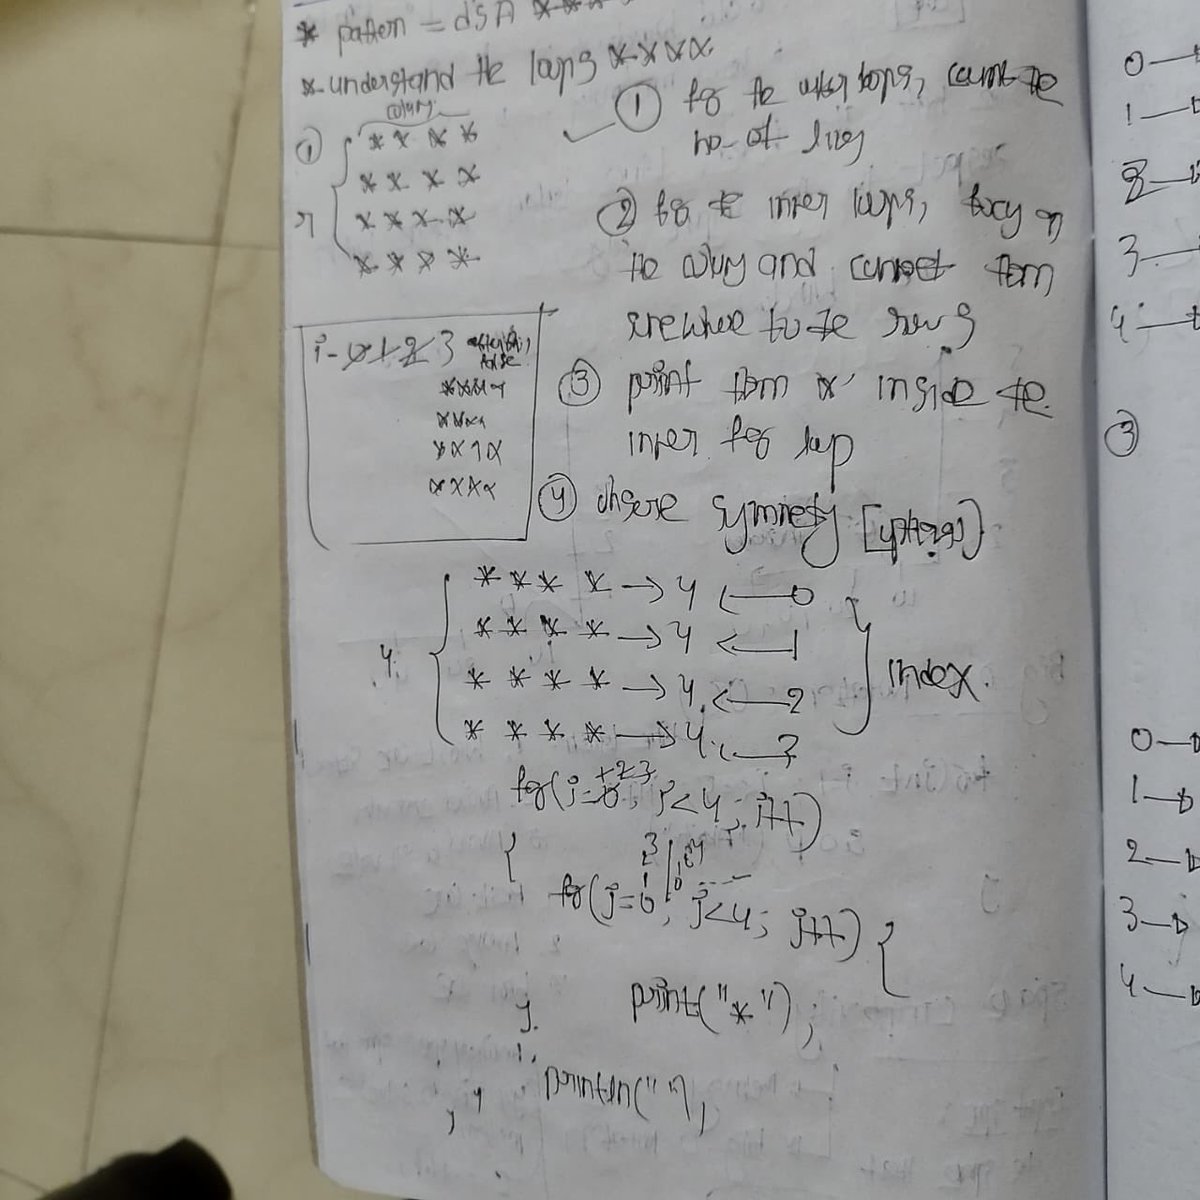 * pattern = dSA * * *
* understand the loops * * * *
column
① * * * *
* * * *
r * * * *
* * * *
① for the outer loops, count the
no. of lines
② for the inner loops, focus on
the column and connect them
somewhere to the rows
③ print them '*' inside the
inner for loop
④ observe symmetry [optional]
i - 0 1 2 3
false
* * * *
* * * *
* * * *
* * * *
* * * * → 4 ← 0
* * * * → 4 ← 1
4. * * * * → 4 ← 2 index.
* * * * → 4 ← 3
1 2 3
for(i=0; i<4; i++)
{
3
2
1
for(j=0; j<4; j++) {
print("*");
}
println(" ");
}
0 →
1 →
2 →
3 →
4 →
③
0 →
1 →
2 →
3 →
4 →